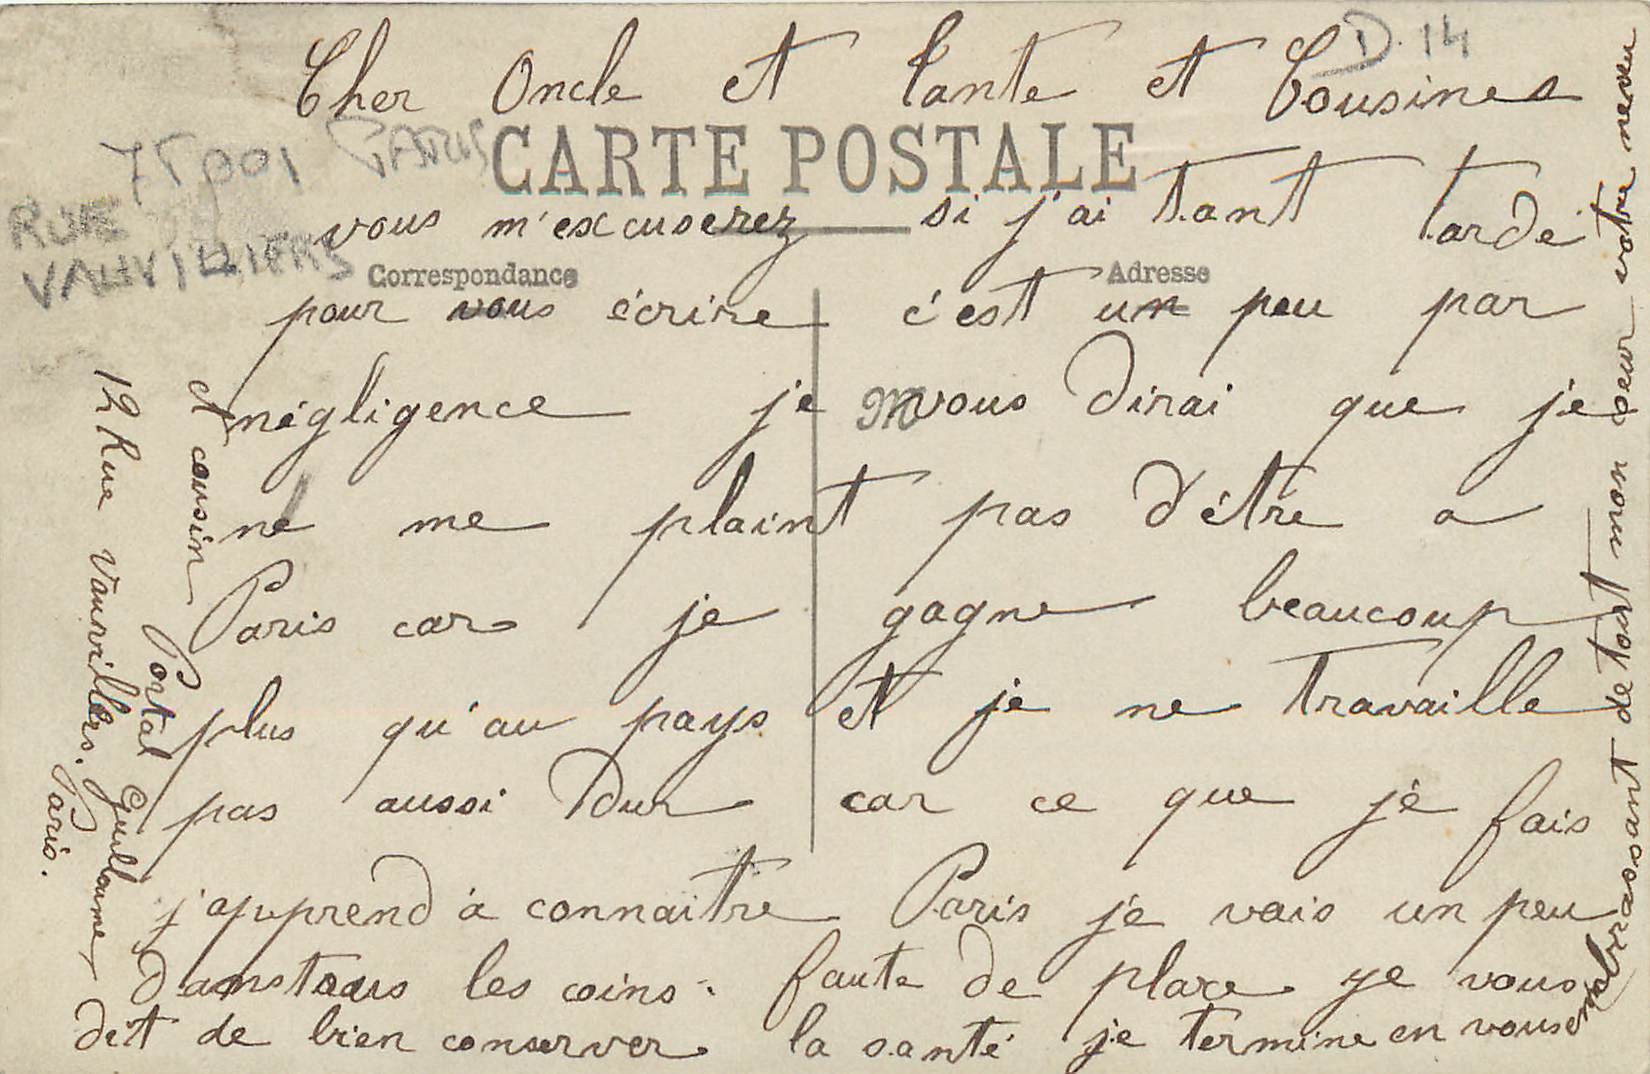 D. 14
Cher Oncle et tante et Cousines
75001 PARIS
CARTE POSTALE
RUE
VAUVILLIERS
vous m'excuserez si j'ai tant tardé
Correspondance
Adresse
pour vous écrire c'est un peu par
négligence je M vous dirai que je
ne me plaint pas d'être a
Paris car je gagne beaucoup
plus qu'au pays et je ne travaille
pas aussi dur car ce que je fais
j'apprend à connaitre Paris je vais un peu
dans tous les coins. faute de place je vous
dit de bien conserver la santé je termine en vous
embrassant de tout mon coeur votre neveu
et cousin
Portal Guillaume
12 Rue Vauvillers.
Paris.